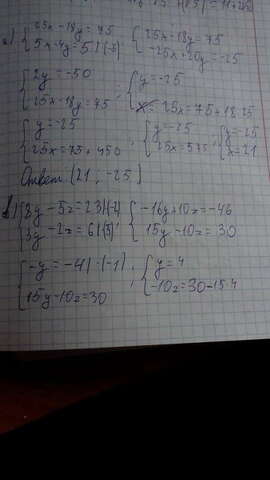 а) { 25x - 18y = 75
5x - 4y = 5 | (-5)
{ 25x - 18y = 75
-25x + 20y = -25
{ 2y = -50
25x - 18y = 75
{ y = -25
25x = 75 + 18·25
{ y = -25
25x = 75 + 450
{ y = -25
25x = 575
{ y = -25
x = 21
Ответ (21, -25)
в) { 8y - 5z = 23 | (-2)
3y - 2z = 6 | (5)
{ -16y + 10z = -46
15y - 10z = 30
{ -y = -4 | · (-1)
15y - 10z = 30
{ y = 4
-10z = 30 - 15·4